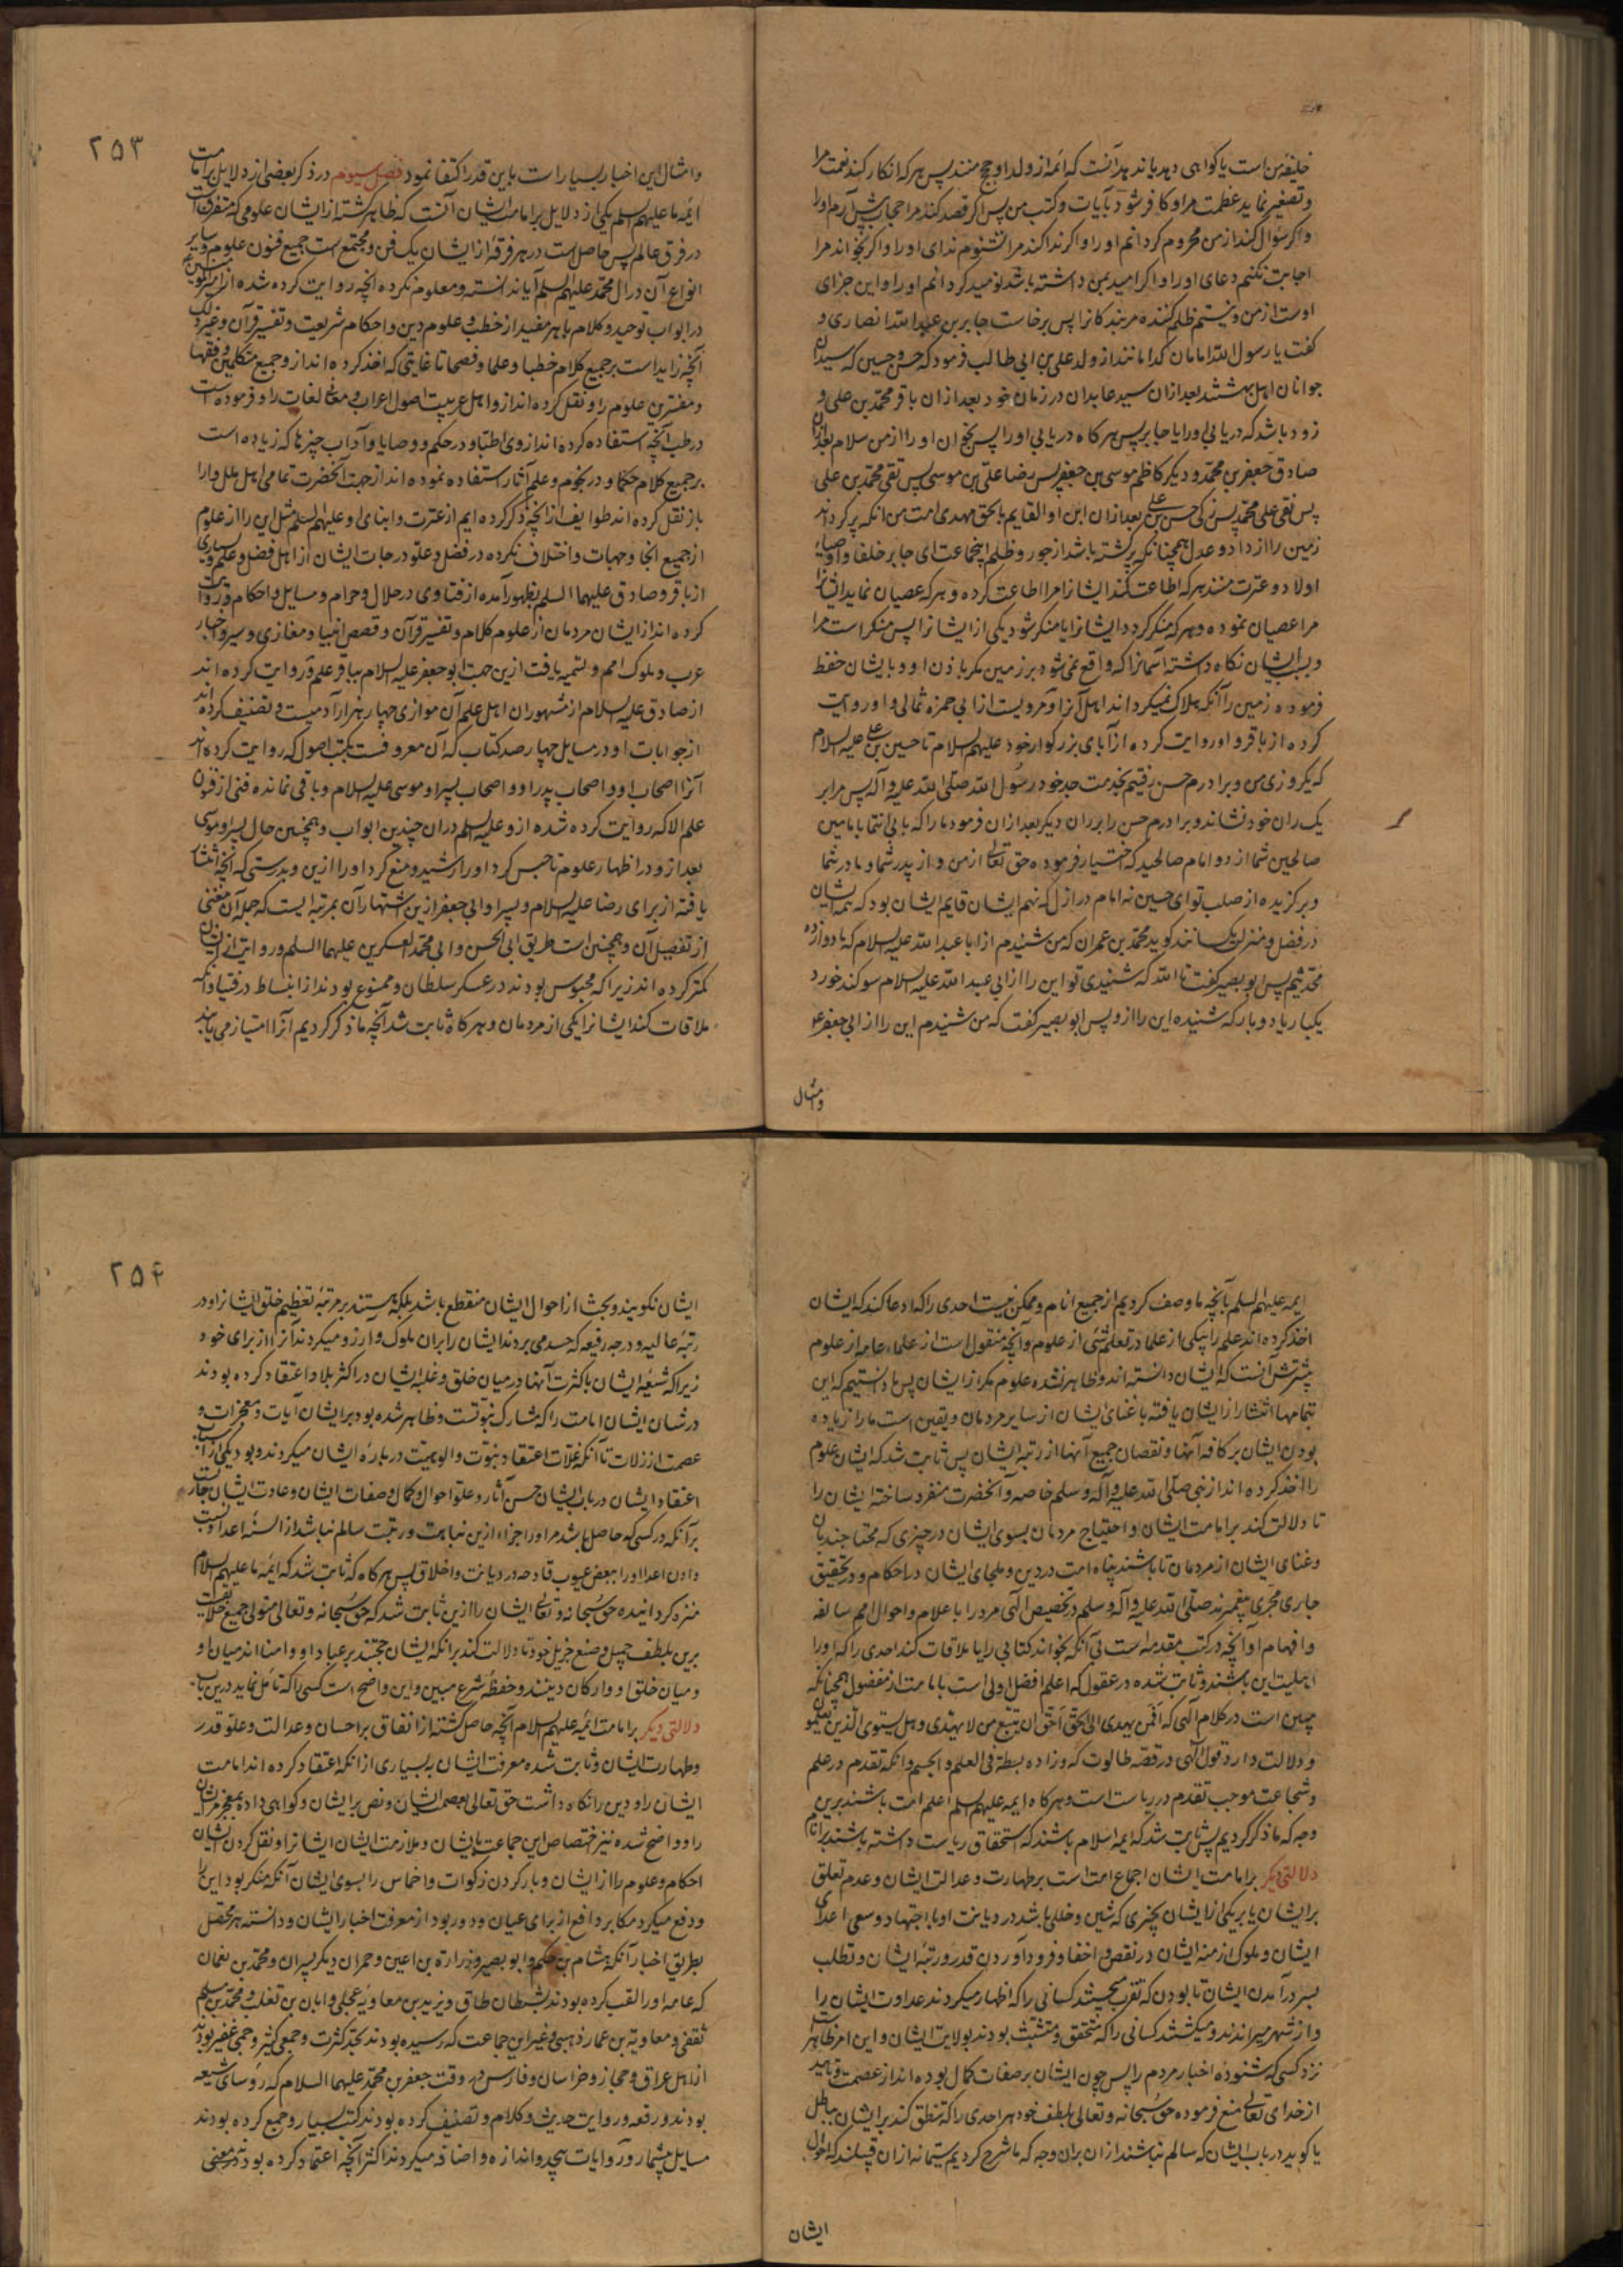 خلیفهٔ من است یا گواهی دهد باند بدآنست که ائمه از ولد او حجج منند پس هر که انکار کند نعمت مرا
وتصغیر نماید عظمت مرا و کافر شود بآیات و کتب من پس اگر قصد کند مرا حجاب پیش آرم او را
واگر سؤال کند از من محروم گردانم او را و اگر ندا کند مرا نشنوم ندای او را و اگر بخواند مرا
اجابت نکنم دعای او را و اگر امید بمن داشته باشد نومید گردانم او را و این جزای
اوست از من و نیستم ظلم کننده مر بندکانرا پس برخاست جابر بن عبد الله انصاری و
کفت یا رسول الله امامان کدامانند از ولد علی بن ابی طالب فرمود که حسن و حسین که سیدان
جوانان اهل بهشتند بعد ازان سید عابدان در زمان خود بعد ازان باقر محمد بن علی و
زود باشد که دریابی او را یا جابر پس هر کاه دریابی او را پس بخوان او را از من سلام بعد ازان
صادق جعفر بن محمد و دیکر کاظم موسی بن جعفر پس رضا علی بن موسی پس تقی محمد بن علی
پس نقی علی بن محمد پس زکی حسن بن علی بعد ازان ابن او القایم بالحق مهدی امت من انکه پر کرداند
زمین را از داد و عدل همچنانکه پر کشته باشد از جور و ظلم اینجماعت ای جابر خلفا و اوصیاء
اولاد و عترت منند هر که اطاعت کند ایشانرا مرا اطاعت کرده و هر که عصیان نماید ایشانرا
مرا عصیان نموده و هر که منکر کردد ایشانرا یا منکر شود یکی از ایشانرا پس منکر است مرا
و بسبب ایشان نکاه داشته آسمانرا که واقع نمی شود بر زمین مکر باذن او و بایشان حفظ
فرموده زمین را آنکه هلاک نمیکرداند اهل آنرا و مرویست از ابی حمزه ثمالی و او روایت
کرده از باقر و او روایت کرده از آبای بزرکوار خود علیهم السلام تا حسین بن علی علیه السلام
که یکروزی من و برادرم حسن رفتیم بخدمت جد خود رسول الله صلی الله علیه و آله پس مرا بر
یک ران خود نشاند و برادرم حسن را بر ران دیکر بعد ازان فرمود ما را که بابی انتما یا بامین
صالحین شما از دو امام صالحید که اختیار فرموده حق تعالی از من و از پدر شما و مادر شما
وبرکزیده از صلب تو ای حسین نه امام در ازل که نهم ایشان قایم ایشان بود که همه ایشان
در فضل و منزلت یکسانند کوید محمد بن عمران که من شنیدم از ابا عبد الله علیه السلام که ما دوازده
محدثیم پس ابو بصیر کفت تا الله که شنیدی تو این را از ابی عبد الله علیه السلام سوکند خورد
یکبار یا دو بار که شنیده این را از و پس ابو بصیر کفت که من شنیدم این را از ابی جعفر
وامثال
۲۵۳
وامثال این اخبار بسیار است باین قدر اکتفا نمود فصل سیوم در ذکر بعضی از دلایل بر امامت
ائمه ما علیهم السلم یکی از دلایل بر امامت ایشان آنست که ظاهر کشته از ایشان علومی که متفرق است
در فرق عالم پس حاصل است در هر فرقهٔ از ایشان یک فن و مجتمع است جمیع فنون علوم و سایر
انواع آن در ال محمد علیهم السلم آیا ندانسته و معلوم نکرده آنچه روایت کرده شده از امیر المؤمنین
در ابواب توحید و کلام باهر مفید از خطب و علوم دین و احکام شریعت و تفسیر قرآن و غیر ذلک
آنچه زاید است بر جمیع کلام خطبا و علما و فصحا تا غایتی که اخذ کرده اند ازو جمیع متکلمین و فقها
و مفسرین علوم را و نقل کرده اند ازو اهل عربیت اصول اعراب و معانی لغات را و فرموده است
در طب آنچه استفاده کرده اند از وی اطبا و در حکم و وصایا و آداب چیزها که زیاده است
بر جمیع کلام حکما و در نجوم و علم آثار استفاده نموده اند از جهت آنحضرت تمامی اهل ملل و ارا
باز نقل کرده اند طوایف از انچه ذکر کرده ایم از عترت و ابنای او علیهم السلم مثل این را از علوم
از جمیع انحا و جهات و اختلاف نکرده در فضل و علو درجات ایشان از اهل فضل و علم و بسیاری
از باقر و صادق علیهما السلم بظهور آمده از فتاوی در حلال و حرام و مسایل و احکام و روایات
کرده اند از ایشان مردمان از علوم کلام و تفسیر قرآن و قصص انبیا و مغازی و سیر و اخبار
عرب و ملوک امم و لتسمیه یافت ازین جهت ابو جعفر علیه السلام بباقر علم و روایت کرده اند
از صادق علیه السلام از مشهوران اهل علم آن موازی چهار هزار آدمیست و تصنیف کرده اند
از جوابات او در مسایل چهار صد کتاب که آن معروفست بکتب اصول که روایت کرده اند
آنرا اصحاب او و اصحاب پدر او و اصحاب پسر او موسی علیه السلام و باقی نمانده فنی از فنون
علم الا که روایت کرده شده ازو علیه السلم دران چندین ابواب و همچنین حال پسر او موسی
بعد ازو در اظهار علوم تا حبس کرد او را رشید و منع کرد او را ازین و بدرستی که آنچه انتشار
یافته از برای رضا علیه السلام و پسر او ابی جعفر ازین اشتهار آن بمرتبه ایست که جمله آن مغنی
از تفصیل آن و همچنین است طریق ابی الحسن و ابی محمد العسکرین علیهما السلم و روایت از ایشان
کمتر کرده اند زیرا که محبوس بودند در عسکر سلطان و ممنوع بودند از انبساط در فتیا و آنکه
ملاقات کند ایشانرا یکی از مردمان و هر کاه ثابت شد آنچه ما ذکر کردیم آنرا امتیاز می یابند
ایمه علیهم السلم بآنچه ما وصف کردیم از جمیع انام و ممکن نیست احدی را که ادعا کند که ایشان
اخذ کرده اند علم را بیکی از علما در تعلم شئی از علوم و آنچه منقول است از علماء عامه از علوم
بیشترش آنست که ایشان دانسته اند و ظاهر نشده علوم مکر از ایشان پس ما دانستیم که این
بتمامها انتشار از ایشان یافته با غنای ایشان از سایر مردمان و یقین است ما را زیاده
بودن ایشان بر کافه آنها و نقصان جمیع آنها از رتبه ایشان پس ثابت شد که ایشان علوم
را اخذ کرده اند از نبی صلی الله علیه و آله و سلم خاصه و آنحضرت منفرد ساخته ایشان را
تا دلالت کند بر امامت ایشان و احتیاج مردمان بسوی ایشان در چیزی که محتاجند بان
وغنای ایشان از مردمان تا باشند پناه امت در دین و ملجای ایشان در احکام و در تحقیق
جاری مجری پیغمبرند صلی الله علیه و آله و سلم در تخصیص الهی مر او را باعلام و احوال امم سالفه
وافهام او آنچه در کتب مقدمه است بی آنکه بخواند کتابی را یا ملاقات کند احدی را که او را
اهلیت این باشند و ثابت شده در عقول که اعلم افضل اولی است بامامت از مفضول همچنانکه
چنین است در کلام الهی که افمن یهدی الی الحق احق ان یتبع من لا یهتدی و هل یستوی الذین یعلمون
و دلالت دارد قول الهی در قصه طالوت که وزاده بسطة فی العلم و الجسم و انکه تقدم در علم
و شجاعت موجب تقدم در ریاست است و هر کاه ایمه علیهم السلم اعلم امت باشند برین
وجه که ما ذکر کردیم پس ثابت شد که ایمه اسلام باشند که استحقاق ریاست داشته باشند بر انام
دلالتی دیکر بر امامت ایشان اجماع امت است بر طهارت و عدالت ایشان و عدم تعلق
بر ایشان یا بر یکی از ایشان بچیزی که شین و خللی باشد در دیانت او با اجتهاد و سعی اعدای
ایشان و ملوک ازمنه ایشان در نقص و اخفا و فرود آوردن قدر و رتبه ایشان و تطلب
بسر در آمدن ایشان تا بودن که تقرب میجستند کسانی را که اظهار میکردند عداوت ایشان را
واز شهر میراندند و میکشتند کسانی را که متحقق و متشبث بودند بولایت ایشان و این امر ظاهر است
نزد کسی که شنوده اخبار مردم را پس چون ایشان بر صفات کمال بوده اند از عصمت و تایید
از خدای تعالی منع فرموده حق سبحانه و تعالی بلطف خود هر احدی را که تنطق کند بر ایشان بباطل
یا کوید در باب ایشان که سالم نباشند ازان بران وجه که ما شرح کردیم ستیمانه ازان قبیلند که احوال
ایشان
۲۵۴
ایشان نکویند و بحث از احوال ایشان منقطع باشد بلکه هستند بر مرتبهٔ تعظیم خلق ایشانرا و در
رتبهٔ عالیه و درجهٔ رفیعه که حسد می بردند ایشان را بران ملوک و آرزو میکردند آنرا از برای خود
زیرا که شیعهٔ ایشان با کثرت آنها در میان خلق و غلبهٔ ایشان در اکثر بلاد اعتقاد کرده بودند
در شان ایشان امامت را که مشارک نبوتست و ظاهر شده بود بر ایشان آیات و معجزات و
عصمت از زلات تا آنکه غلات اعتقاد نبوت و الوهیت در بارهٔ ایشان میکردند و بود یکی از اسباب
اعتقاد ایشان در باب ایشان حسن آثار و علو احوال و کمال و صفات ایشان و عادت ایشان جاریست
بر آنکه در کسی که حاصل باشد مر او را جزاء ازین نباهت و رتبت سالم نباشد از السنهٔ اعدا و نسبت
دادن اعدا او را ببعض عیوب قادحه در دیانت و اخلاق پس هر کاه که ثابت شد که ائمه ما علیهم السلام
منزه کردانیده حق سبحانه و تعالی ایشان را ازین ثابت شد که حق سبحانه و تعالی متولی جمیع خلایقست
برین بلطف جمیل و صنع جزیل خود تا دلالت کند برانکه ایشان حجتند بر عباد او و امنا اند میان او
ومیان خلق او و ارکان دینند و حفظهٔ شرع مبین و این واضح است کسی را که تأمل نماید درین باب
دلالتی دیکر بر امامت ائمه علیهم السلام آنچه حاصل کشته از اتفاق بر احسان و عدالت و علو قدر
وطهارت ایشان و ثابت شده معرفت ایشان به بسیاری از انکه اعتقاد کرده اند امامت
ایشان را و دین را نکاه داشت حق تعالی بعصمت ایشان و نص بر ایشان و کواهی داده بمعجز مر ایشان
را و واضح شده نیز اختصاص این جماعت بایشان و ملازمت ایشان ایشانرا و نقل کردن ایشان
احکام و علوم را از ایشان و بار کردن زکوات و اخماس را بسوی ایشان آنکه منکر بود این را
ودفع میکرد مکابر دافع از برای عیان و دور بود از معرفت اخبار ایشان و دانسته هر محصل
بطریق اخبار آنکه هشام بن حکم و ابو بصیر و زرارة بن اعین و حمران دیکر پسران و محمد بن نعمان
که عامه او را لقب کرده بودند بشیطان طاق و یزید بن معاویه عجلی و ابان بن تغلب و محمد بن مسلم
ثقفی و معاویة بن عمار ذهبی و غیر این جماعت که رسیده بودند بحد کثرت و جمعی کثیر و جمی غفیر بودند
از اهل عراق و حجاز و خراسان و فارس در وقت جعفر بن محمد علیهما السلام که رؤسای شیعه
بودند و رقعه و روایت حدیث و کلام و تصنیف کرده بودند کتب بسیار و جمع کرده بودند
مسایل بیشمار و روایات بیحد و اندازه و اضافه میکردند اکثر آنچه اعتماد کرده بودند در معنی